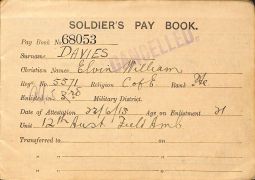 SOLDIER'S PAY BOOK.
CANCELLED.
Pay Book No. 68053
Surname DAVIES
Christian Names Elvin William
Regt. No. 5571 Religion C of E Rank Pte
Enlisted in Military District.
Date of Attestation 22/6/15 Age on Enlistment 21
Unit 12th Aust Field Amb
Transferred to on
" " on
" " on